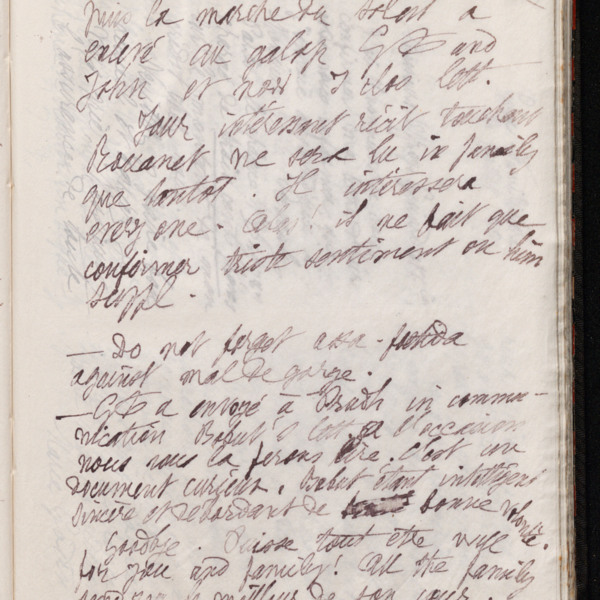 puis la marche du soleil a
enlevé au galop and
John et now I clos lett.
Your intéressant récit touchant
Rouanet ne sera lu in family
que tantôt. Il intéressera
every one. Alas! il ne fait que
conformer triste sentiment on him
suppl.
— Do not forget assa-foetida
against mal de gorge.
— a envoyé à in commu-
nication lett. à l'occasion
nous vous la ferons lire. C'est un
document curieux, étant intelligent
sincère et débordant de bonne volonté.
Goodbye. Puisse tout être well
for you and family! All the family
le meilleur de son cœur.